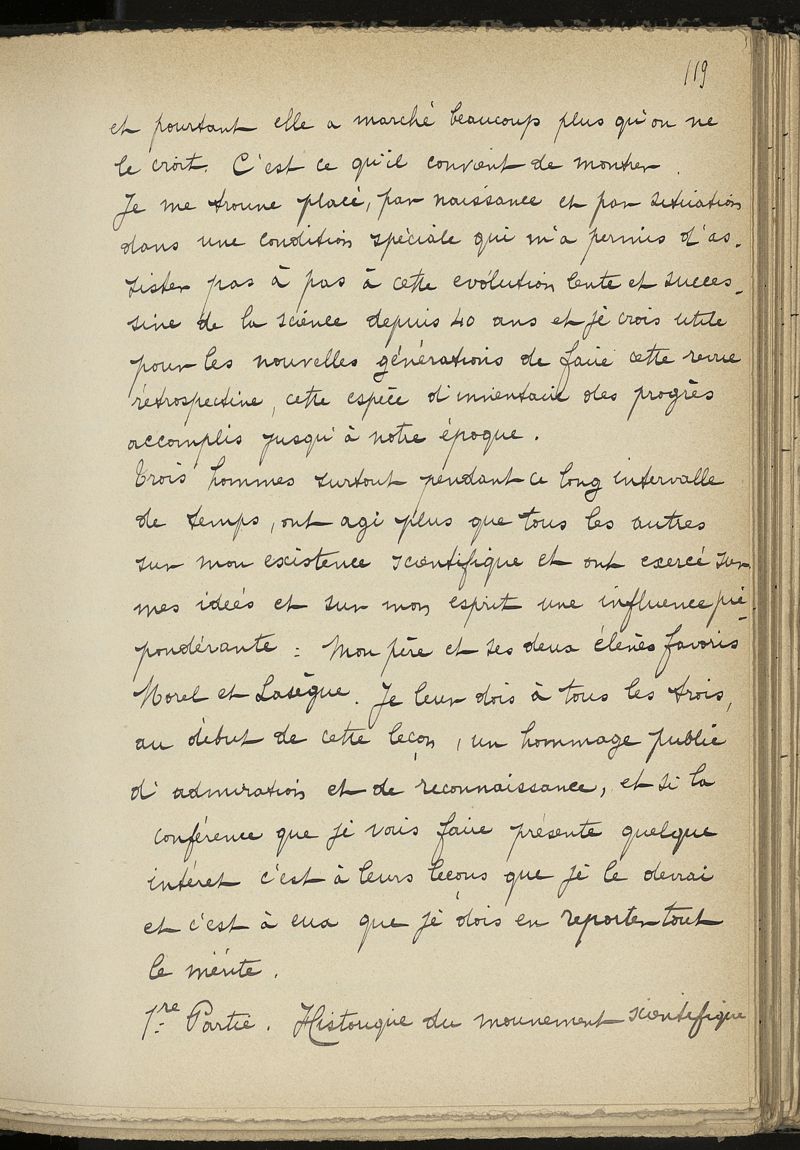 119
et pourtant elle a marché beaucoup plus qu'on ne
le croit. C'est ce qu'il convient de montrer.
Je me trouve placé, par naissance et par situation
dans une condition spéciale qui m'a permis d'as-
sister pas à pas à cette evolution lente et succes-
sive de la science depuis 40 ans et je crois utile
pour les nouvelles générations de faire cette revue
rétrospective, cette espèce d'inventaire des progrès
accomplis jusqu'à notre époque.
Trois hommes surtout pendant ce long intervalle
de temps, ont agi plus que tous les autres
sur mon existence scientifique et ont exercé sur
mes idées et sur mon esprit une influence pré-
pondérante : Mon père et ses deux élèves favoris
Morel et Lasègue. Je leur dois à tous les trois,
au début de cette leçon, un hommage public
d'admiration et de reconnaissance, et si la
conférence que je vais faire présente quelque
intéret c'est à leurs leçons que je le devrai
et c'est à eux que je dois en reporter tout
le mérite.
1re Partie. Historique du mouvement scientifique